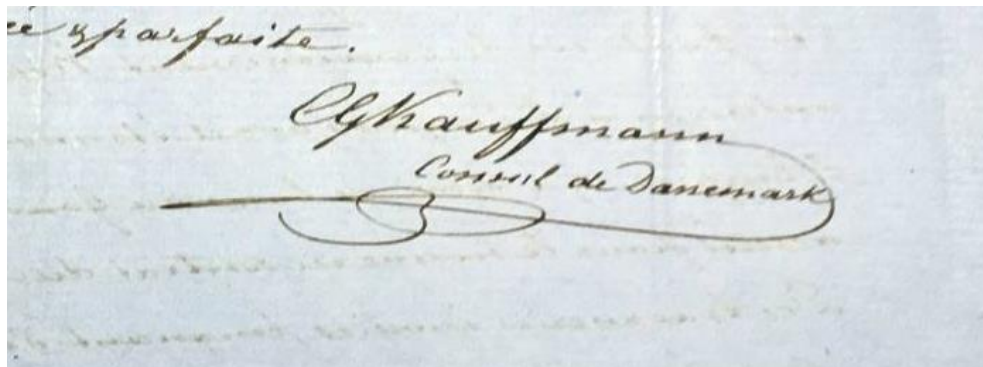 parfaite.
CGKauffmann
Consul de Danemark